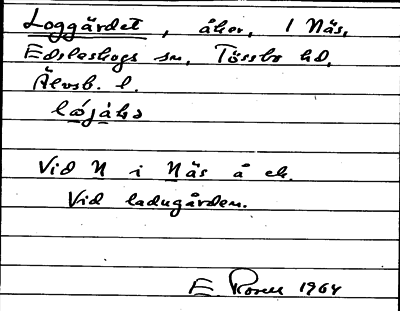 Loggärdet, åker, 1 Näs,
Edsleskogs sn, Tössbo hd,
Älvsb. l.
Vid N i Näs å ek.
Vid ladugården.
E. Rosell 1964